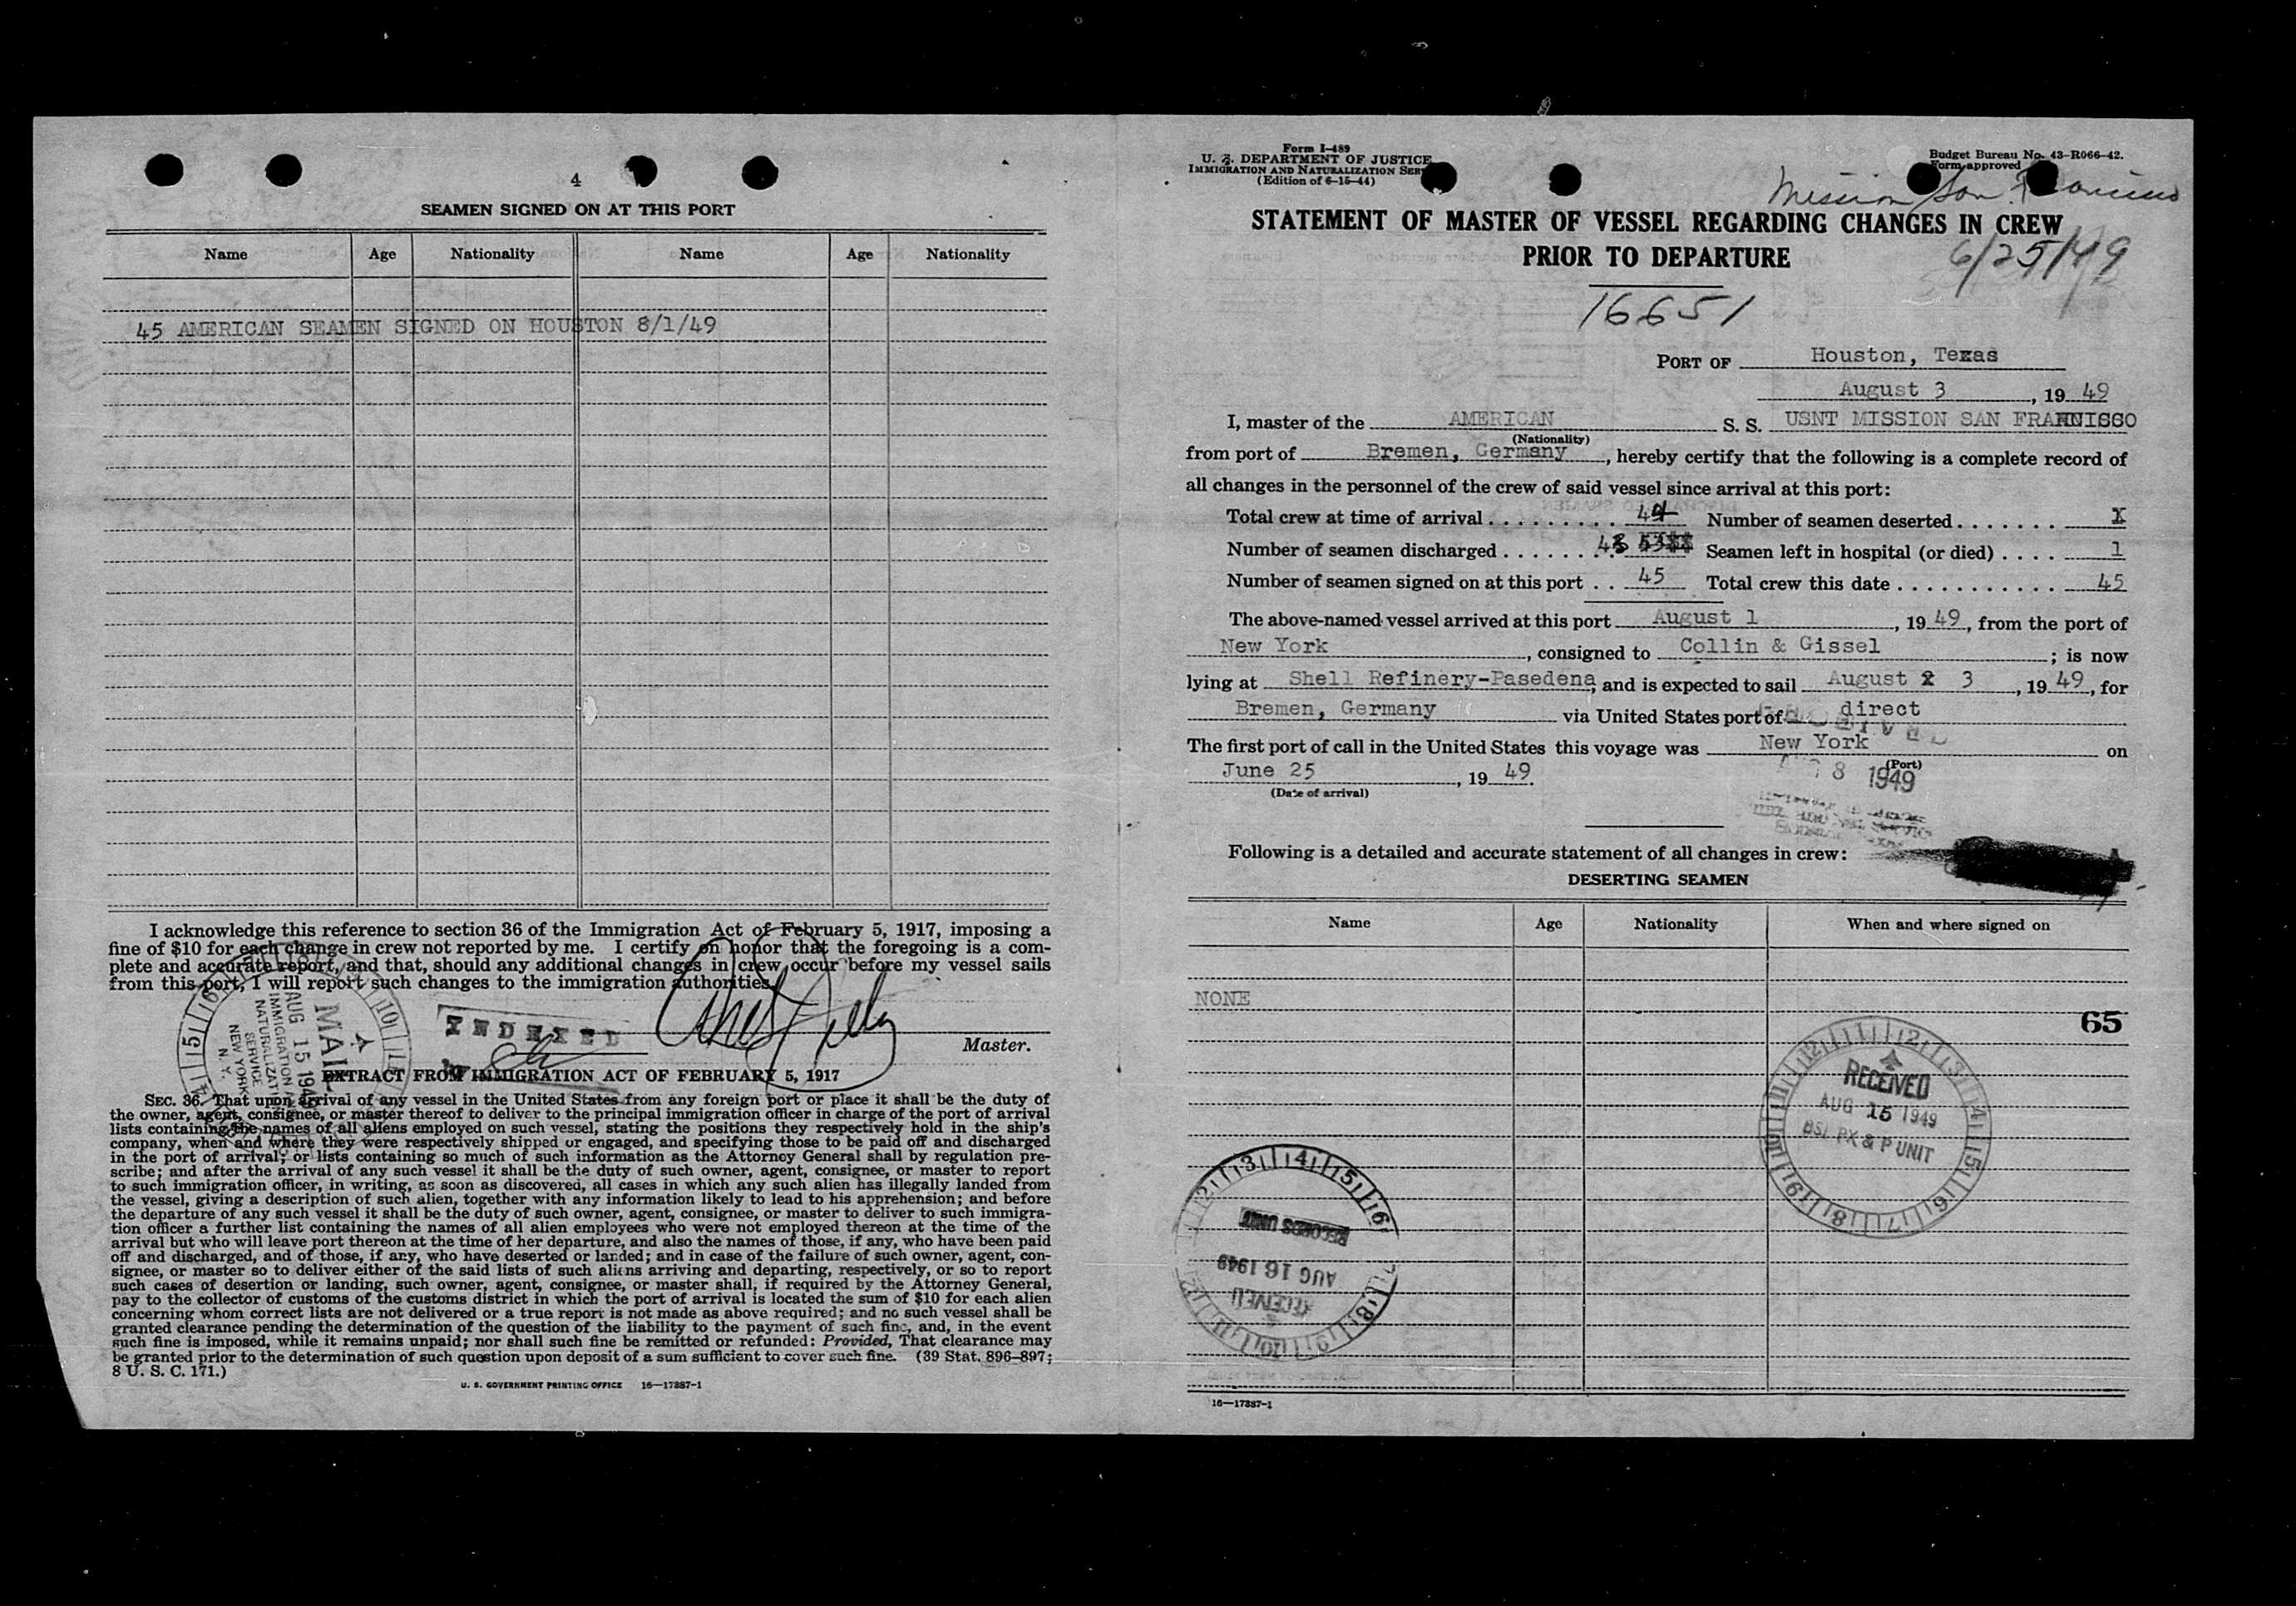 4
SEAMEN SIGNED ON AT THIS PORT
Name Age Nationality Name Age Nationality
45 AMERICAN SEAMEN SIGNED ON HOUSTON 8/1/49
I acknowledge this reference to section 36 of the Immigration Act of February 5, 1917, imposing a
fine of $10 for each change in crew not reported by me. I certify on honor that the foregoing is a com-
plete and accurate report, and that, should any additional changes in crew occur before my vessel sails
from this port, I will report such changes to the immigration authorities.
INDEXED
Master.
MAIL
AUG 15 194
IMMIGRATION
SERVICE
NEW YORK
N. Y.
EXTRACT FROM IMMIGRATION ACT OF FEBRUARY 5, 1917
SEC. 36. That upon arrival of any vessel in the United States from any foreign port or place it shall be the duty of
the owner, agent, consignee, or master thereof to deliver to the principal immigration officer in charge of the port of arrival
lists containing the names of all aliens employed on such vessel, stating the positions they respectively hold in the ship's
company, when and where they were respectively shipped or engaged, and specifying those to be paid off and discharged
in the port of arrival; or lists containing so much of such information as the Attorney General shall by regulation pre-
scribe; and after the arrival of any such vessel it shall be the duty of such owner, agent, consignee, or master to report
to such immigration officer, in writing, as soon as discovered, all cases in which any such alien has illegally landed from
the vessel, giving a description of such alien, together with any information likely to lead to his apprehension; and before
the departure of any such vessel it shall be the duty of such owner, agent, consignee, or master to deliver to such immigra-
tion officer a further list containing the names of all alien employees who were not employed thereon at the time of the
arrival but who will leave port thereon at the time of her departure, and also the names of those, if any, who have been paid
off and discharged, and of those, if any, who have deserted or landed; and in case of the failure of such owner, agent, con-
signee, or master so to deliver either of the said lists of such aliens arriving and departing, respectively, or so to report
such cases of desertion or landing, such owner, agent, consignee, or master shall, if required by the Attorney General,
pay to the collector of customs of the customs district in which the port of arrival is located the sum of $10 for each alien
concerning whom correct lists are not delivered or a true report is not made as above required; and no such vessel shall be
granted clearance pending the determination of the question of the liability to the payment of such fine, and, in the event
such fine is imposed, while it remains unpaid; nor shall such fine be remitted or refunded: Provided, That clearance may
be granted prior to the determination of such question upon deposit of a sum sufficient to cover such fine. (39 Stat. 896–897;
8 U. S. C. 171.)
U. S. GOVERNMENT PRINTING OFFICE 16—17387-1
Form I-489
U. S. DEPARTMENT OF JUSTICE
IMMIGRATION AND NATURALIZATION SER
(Edition of 6-15-44)
Budget Bureau No. 43-R066-42.
Form approved
Mission San Francisco
STATEMENT OF MASTER OF VESSEL REGARDING CHANGES IN CREW
PRIOR TO DEPARTURE
6/25/49
16651
PORT OF Houston, Texas
August 3, 1949
I, master of the AMERICAN S. S. USNT MISSION SAN
(Nationality)
from port of Bremen, Germany, hereby certify that the following is a complete record of
all changes in the personnel of the crew of said vessel since arrival at this port:
Total crew at time of arrival 44 Number of seamen deserted
Number of seamen discharged 43 Seamen left in hospital (or died) 1
Number of seamen signed on at this port 45 Total crew this date 45
The above-named vessel arrived at this port August 1, 1949, from the port of
New York, consigned to Collin & Gissel; is now
lying at Shell Refinery-Pasedena, and is expected to sail August 3, 1949, for
Bremen, Germany via United States port of direct
The first port of call in the United States this voyage was New York on
(Port)
June 25, 1949.
(Date of arrival)
8 1949
Following is a detailed and accurate statement of all changes in crew:
DESERTING SEAMEN
Name Age Nationality When and where signed on
NONE
65
RECEIVED
AUG 15 1949
BSI PX & P UNIT
RECORDS UNIT
AUG 16 1949
RECEIVED
16—17387-1